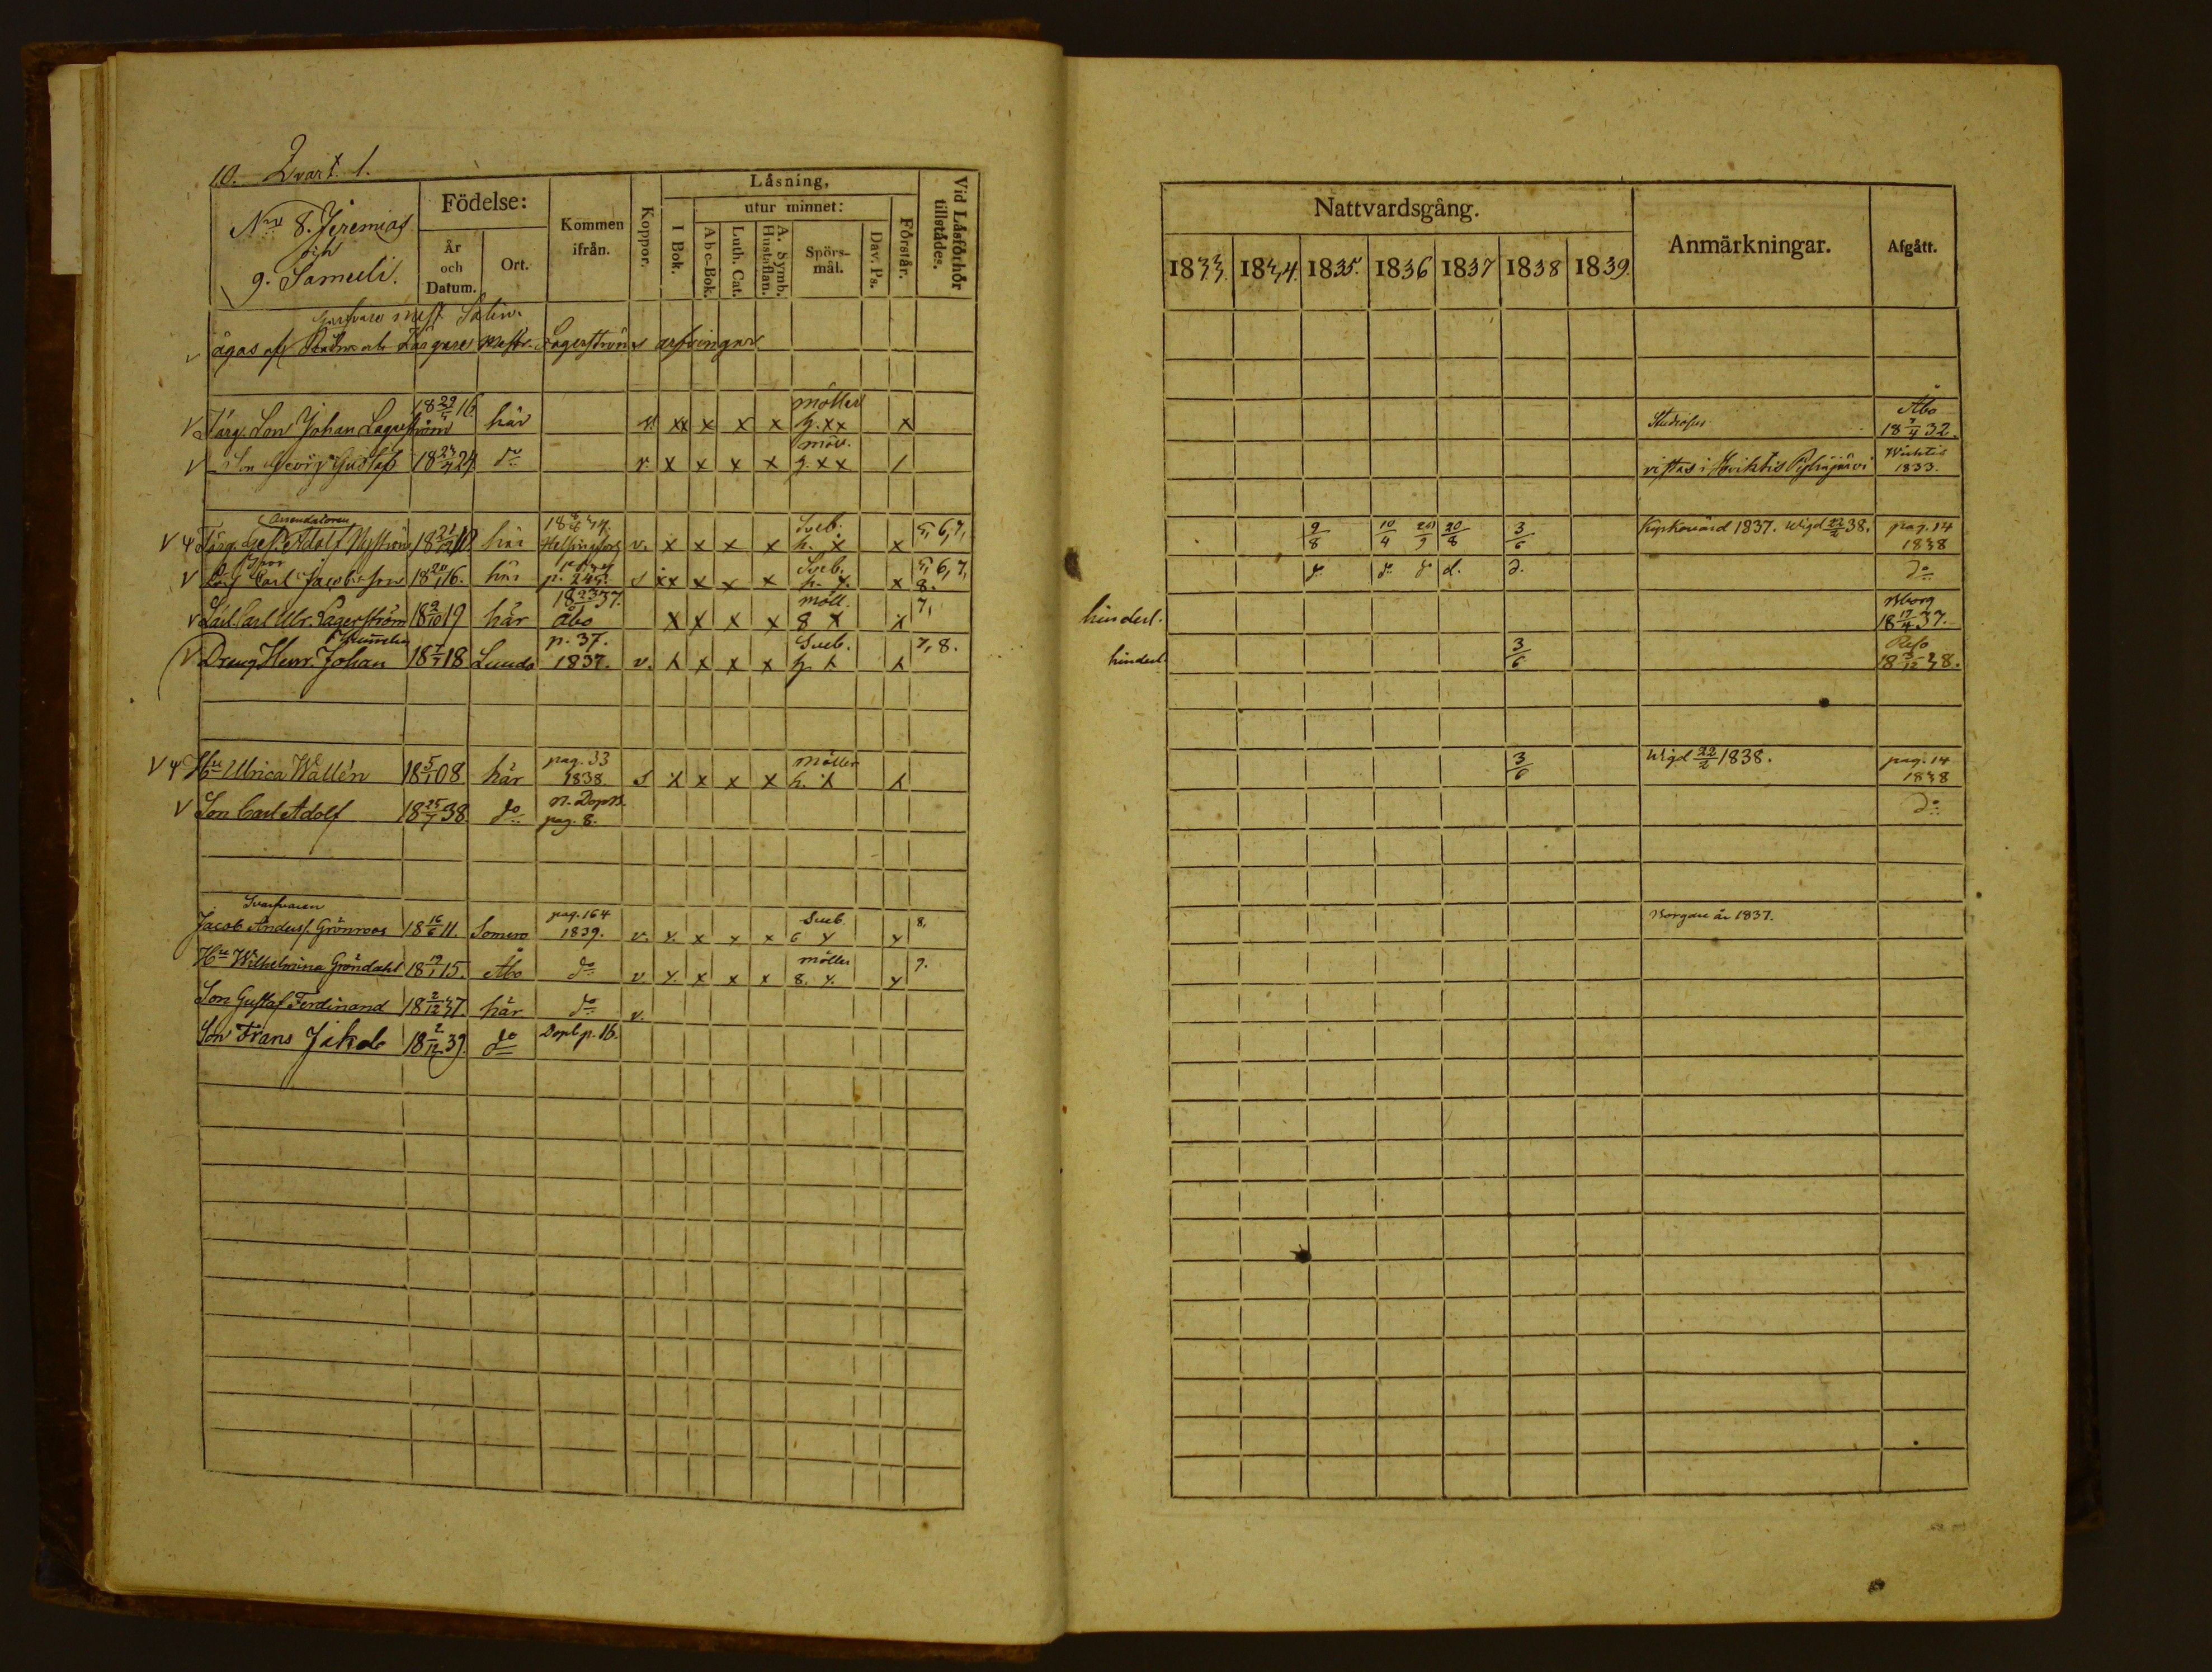 10. Qvart. 1.
Nro 8. Jeremias
och
9. Samueli.
Födelse:
År och Datum.
Ort.
Kommen ifrån.
Koppor.
Läsning,
I Bok.
utur minnet:
Abc-Bok.
Luth. Cat.
A. Symb. Hustaflan.
Spörs-mål.
Dav. Ps.
Förstår.
Vid Läsförhör tillstädes.
Nattvardsgång.
1833. 1834. 1835. 1836 1837 1838 1839.
Anmärkningar.
Afgått.
Garfvare mest. Salin.
ägas af Färgare mestr. Lagerströms arfvingar
möller Åbo
v Färg. Son Johan Lagerström 18 29/4 16 här v. xx x x x h. xx x Studiosus 18 7/4 32.
möll. Wichtis
v Son Georg Gustaf 18 23/4 24 do v. x x x x g. xx / vistas i Wichtis Pyhäjärvi 1833.
Arrendatoren Sveb. 5, 6, 7,
v Färg. Ges. Adolf Nyström här Helsingfors v. x x x x h. x x 9/8 10/4 20/8 3/6 Kyrkovärd 1837. Wigd 22/2 38. pag. 14
1838
Sveb. 5, 6, 7,
v Carl Jacobsson 18 20/1 16. här p. 245. s xx x x x h. x. x 8. do do do d. d. do
18 23/3 37. möll. 7,
v Lärl. Carl Ulr. Lagerström 18 9/10 19 här Åbo x x x x 8 x x hinderl. 18 17/4 37.
p. 37. Sveb. 7, 8.
v Dreng Henr. Johan 18 7/7 18 Lundo 1837. v. x x x x h. x x hinderl. 3/6 18 3/12 38.
pag. 33 möller
v Hu Ulrica Wallén 18 5/1 08 här 1838. s x x x x h. x x 3/6 Wigd 22/2 1838. pag. 14
1838
n. Dopb.
v Son Carl Adolf 18 25/7 38. do pag. 8. do
Svarfvaren pag. 164 Sveb 8.
Jacob Anderss. Grönroos 18 16/6 11. Somero 1839. v. x. x x x 6 x x Borgare år 1837.
möller
Hu Wilhelmina Gröndahl 18 19/1 15. Åbo do v x. x x x 8. x. x 7.
Son Gustaf Ferdinand 18 2/12 37. här do v.
Son Frans Jakob 18 2/12 39. do Dopb p. 16.